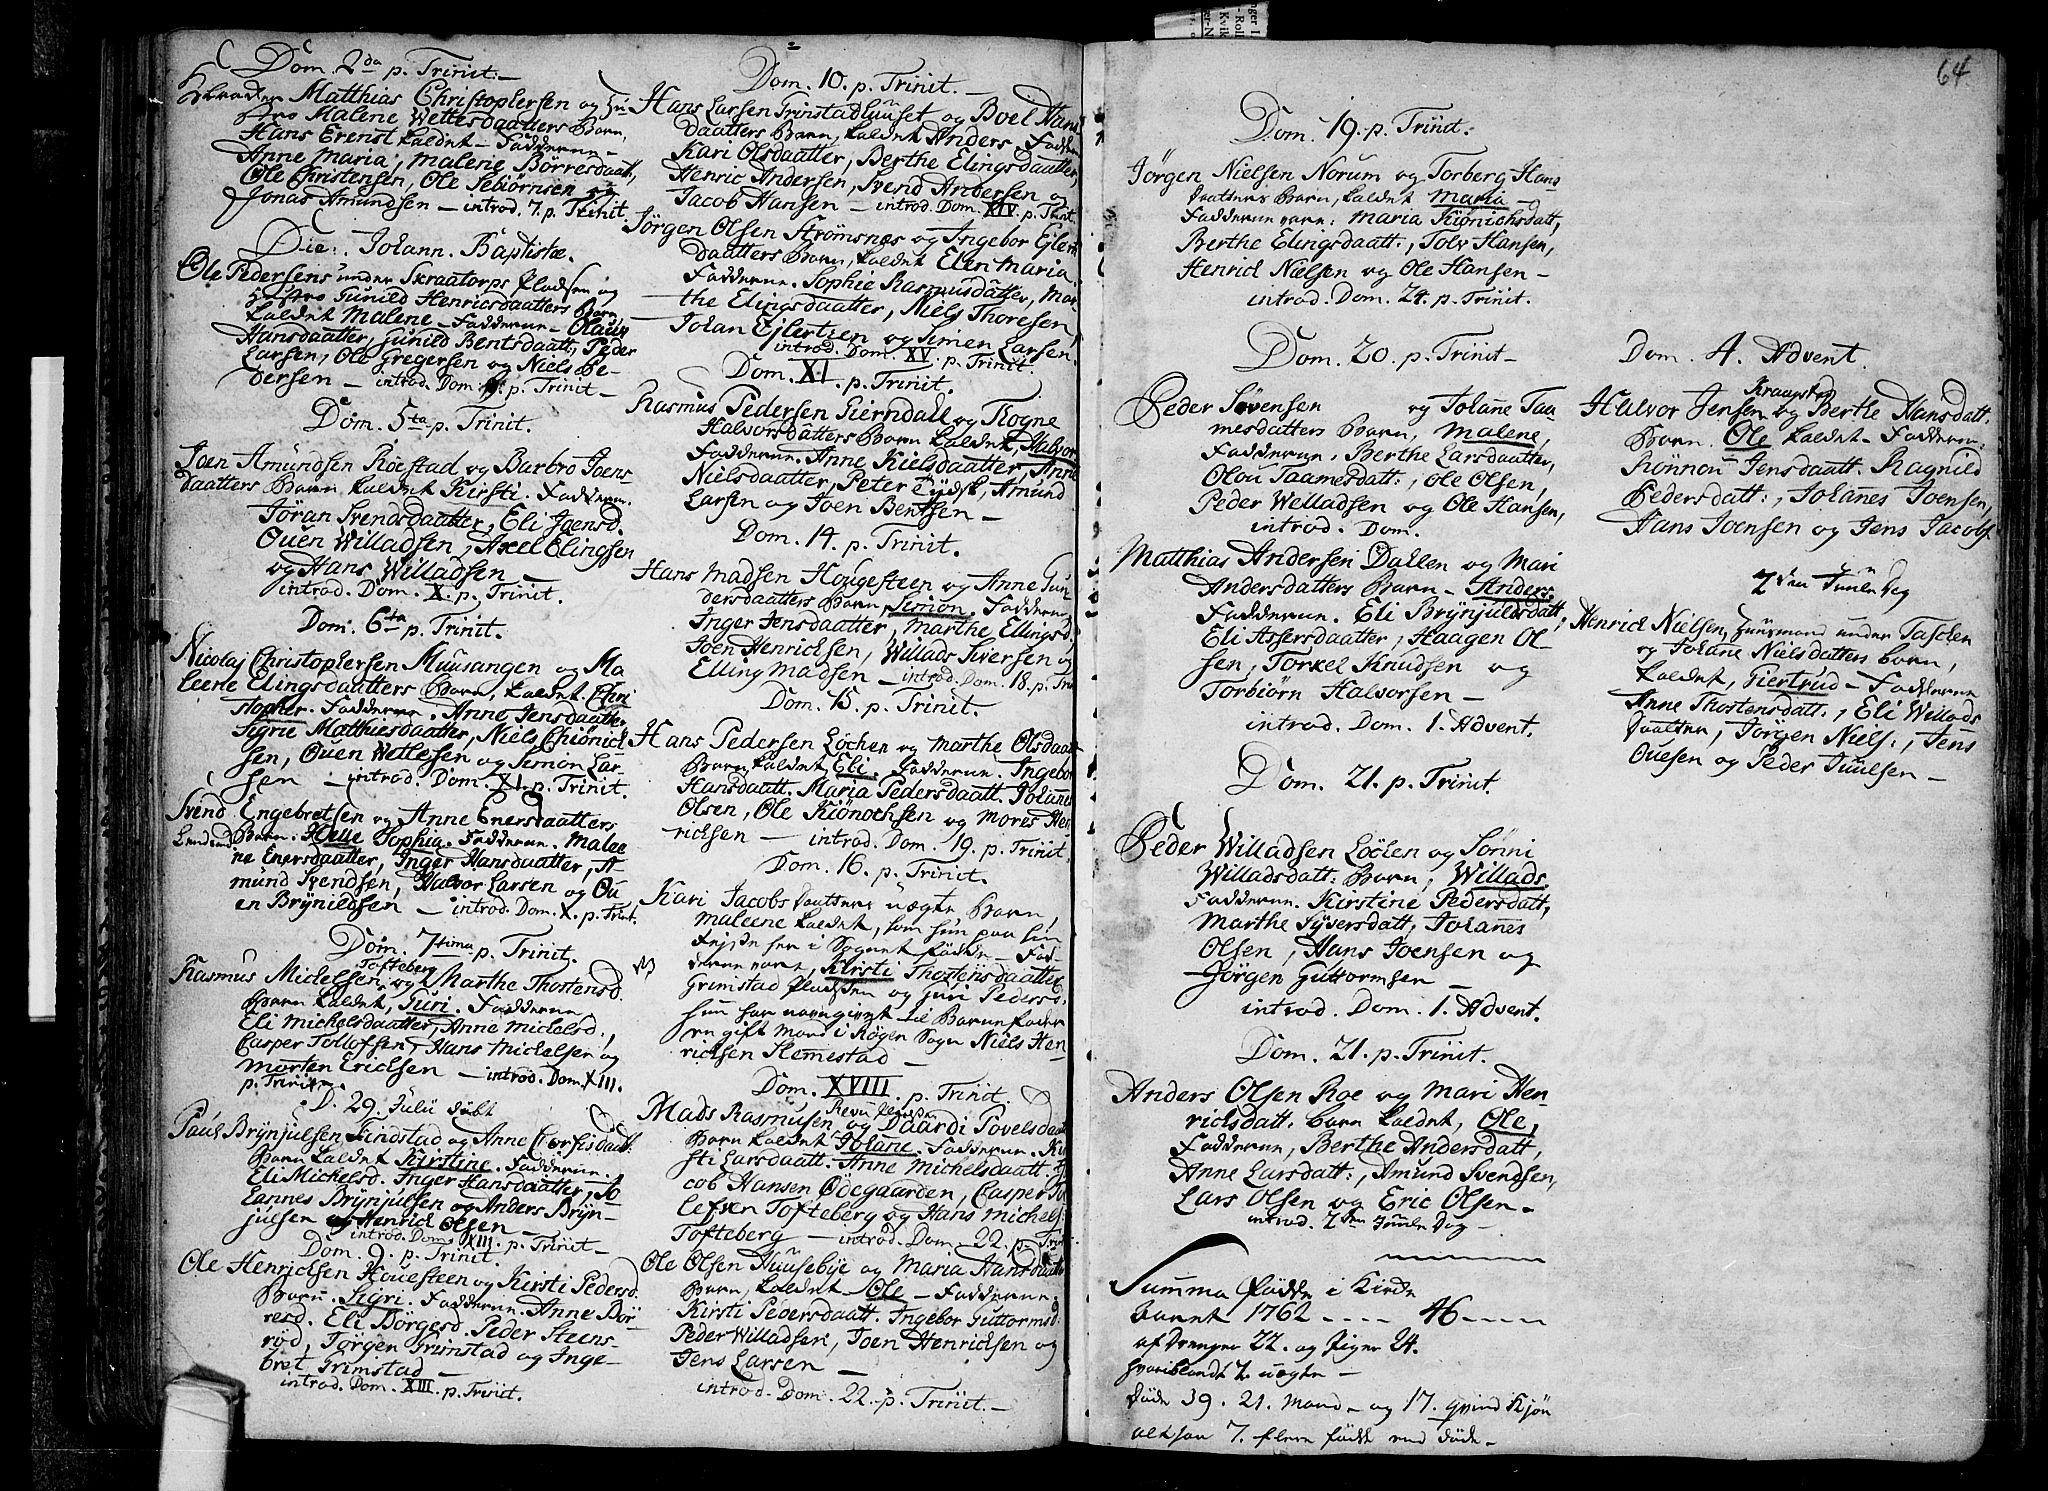 Dom. 2da p. Trinit.
Matthias Christophersen og
Malene Wettesdaatters Barn,
Hans Erenst kaldet - Fadderne -
Anne Maria, Malene Börresdaatt,
Ole Christensen, Ole Sebiörnsen og
Jonas Amundsen - introd. 7. p. Trinit.
Die: Johann. Baptistæ.
Ole Pedersens under Skraatorps Pladsen og
Hustro Gunild Henricsdaatters Barn,
kaldet Malene - Fadderne - Olaug
Hansdaatter, Gunild Bentsdaatt, Peder
Larsen, Ole Gregersen og Niels Pe-
dersen - introd. Dom. p. Trinit -
Dom. 5ta p. Trinit.
Joen Amundsen Röestad og Barbro Joens-
daatters Barn, kaldet Kirsti. Fadderne.
Jöran Svendsdaatter, Eli Joensd.
Ouen Willadsen, Axel Elingsen
og Hans Willadsen -
introd. Dom. X. p. Trinit.
Dom. 6ta p. Trinit.
Nicolaj Christophersen Muusangen og Ma-
leene Elingsdaatters Barn, kaldet Chri-
stopher. Fadderne. Anne Jensdaatter,
Sigrie Matthiesdaatter, Niels Chiönick-
sen, Ouen Wetlesen og Simon Lar-
sen - introd. Dom. XI. p. Trinit.
Svend Engebretsen og Anne Enersdaatters
Barn. Helle Sophia. Fadderne. Malee-
ne Enersdaatter, Inger Hansdaatter, A-
mund Svendsen, Halvor Larsen og Ou-
en Brynildsen - introd. Dom. X. p. Trint.
Dom. 7tima p. Trinit.
Tofteberg
Rasmus Michelsen og Marthe Thostensd.
Barn kaldet, Guri. Fadderne
Eli Michelsdaatter, Anne Michelsd.,
Casper Tollofsen, Hans Michelsen og
Morten Ericksen - introd. Dom. XIII.
p. Trinit.
D. 29. Julii döbt
Paul Brynjulsen Findstad og Anne daatt:
Barn kaldet Kirstine. Fadderne.
Eli Michelsd. Inger Hansdaatter, Jo-
hannes Brynjulsen og Anders Bryn-
julsen og Henrick Olsen -
introd. Dom. XIII. p. Trinit -
Dom. 9. p. Trinit.
Ole Henricksen Houesteen og Kirsti Pedersd.
Barn. Sigri. Fadderne. Anne Bör-
resd. Eli Börgesd. Peder Steens-
rod, Jörgen Grimstad og Inge-
bret Grimstad -
introd. Dom. XIII. p. Trinit.
Dom. 10. p. Trinit.
Hans Larsen Grinstadhuuset og Boel Hans-
daatters Barn, kaldet Anders. Faddern
Kari Olsdaatter, Berthe Elingsdaatter,
Henric Andersen, Svend Andersen og
Jacob Hansen - introd. Dom. XIV. p. Trinit.
Jörgen Olsen Strömsnes og Ingebor Ejlerts-
daatters Barn, kaldet Elen Maria
Fadderne. Sophie Rasmusdatter, Mar-
the Elingsdaatter, Niels Thoresen,
Johan Ejlertsen og Simen Larsen.
introd. Dom. XV. p. Trinit.
Dom. XI. p. Trinit.
Rasmus Pedersen Gierndall og Rogne
Halvorsdatters Barn kaldet, Halvor
Fadderne. Anne Kielsdaatter, Anne
Nielsdaatter, Peter Tydsk, Amund
Larsen og Joen Bentsen -
Dom. 14. p. Trinit.
Hans Madsen Hougesteen og Anne Gun-
dersdaatters Barn, Simon. Fadderne
Inger Jensdaatter, Marthe Ellingsd.
Joen Henricksen, Willads Siversen og
Elling Madsen - introd. Dom. 18. p. Trin
Dom. 15. p. Trinit.
Hans Pedersen Löchen og Marthe Olsdaatt
Barn kaldet Eli. Fadderne. Ingebor
Hansdaatt. Maria Pedersdaatt. Johannes
Olsen, Ole Kiönochsen og Mores Hen-
ricksen - introd. Dom. 19. p. Trinit.
Dom. 16. p. Trinit.
Kari Jacobsdaatters uægte Barn,
Maleene kaldet, som hun paa sin
Rejse her i Sognet födde - Fad-
derne vare, Kirsti Thostensdaatter
Grimstad Pladsen og Juri Pedersd.
hun har navngivet til Barnefader
en gift Mand i Rögen Sogn Niels Hen-
ricksen Slemestad -
Dom. XVIII. p. Trinit.
Mads Rasmusen og Daardi Povelsdaatt
Barn kaldet Johane. Fadderne. Kir-
sti Larsdaatt. Anne Michelsdaatt. Ja-
cob Hansen Ødegaarden, Casper Tol-
lefsen Tofteberg og Hans Michels:
Tofteberg - introd. Dom. 22. p. Trinit.
Ole Olsen Huusebye og Maria Hansdaatt
Barn, kaldet Ole - Fadderne.
Kirsti Pedersdaatt. Ingebor Guttormsd.
Peder Willadsen, Joen Henricksen og
Jens Larsen -
introd. Dom. 22. p. Trinit. -
64
Dom. 19. p. Trinit.
Jörgen Nielsen Norum og Torberg Hans-
daatters Barn, kaldet Maria -
Fadderne vare: Maria Kiönichsdatt,
Berthe Elingsdaatt., Tolv Hansen,
Henrick Nielsen og Ole Hansen -
introd. Dom. 24. p. Trinit.
Dom. 20. p. Trinit -
Peder Sörensen og Johane Taa-
mesdatters Barn, Malene,
Fadderne. Berthe Larsdaatter,
Olou Taamesdatt:, Ole Olsen,
Peder Welladsen og Ole Hansen,
introd. Dom.
Matthias Andersen Dallen og Mari
Andersdatters Barn - Anders.
Fadderne. Eli Brynjulsdatt,
Eli Assersdaatter, Haagen Ol-
sen, Torkel Knudsen og
Torbiörn Halvorsen -
introd. Dom. 1. Advent.
Dom. 21. p. Trinit.
Peder Willadsen Löchen og Sönni
Willadsdatt: Barn, Willads.
Fadderne. Kirstine Pedersdatt,
Marthe Syversdatt, Johanes
Olsen, Hans Joensen og
Jörgen Guttormsen -
introd. Dom. 1. Advent.
Dom. 21. p. Trinit.
Anders Olsen Roe og Mari Hen-
ricksdatt. barn kaldet, Ole,
Fadderne, Berthe Andersdatt,
Anne Larsdatt:, Amund Svendsen,
Lars Olsen og Eric Olsen -
introd. 2den Juule Dag -
Summa födde i Kirke
Aaret 1762 - - - 46 - - -
af Drenge 22. og Piger 24.
hvoriblandt 2. uægte -
Döde 39. 21. Mand - og 17. Qvind Kjön
altsaa 7. flere födde end döde -
Dom. 4. Advent.
Kraagstad
Halvor Jensen og Berthe Hansdatt.
Barn. Ole kaldet - Fadderne:
Rönnou Jensdaatt. Ragnild
Pedersdatt:, Johanes Joensen,
Hans Joensen og Jens Jacobs
2den Juule Dag
Henrick Nielsen, Huusmand under Taschen
og Johane Nielsdatters barn,
kaldet, Giertrud - Fadderne
Anne Thostensdatt., Eli Willads-
daatter, Jörgen Niels:, Jens
Ouesen og Peder Juulsen -